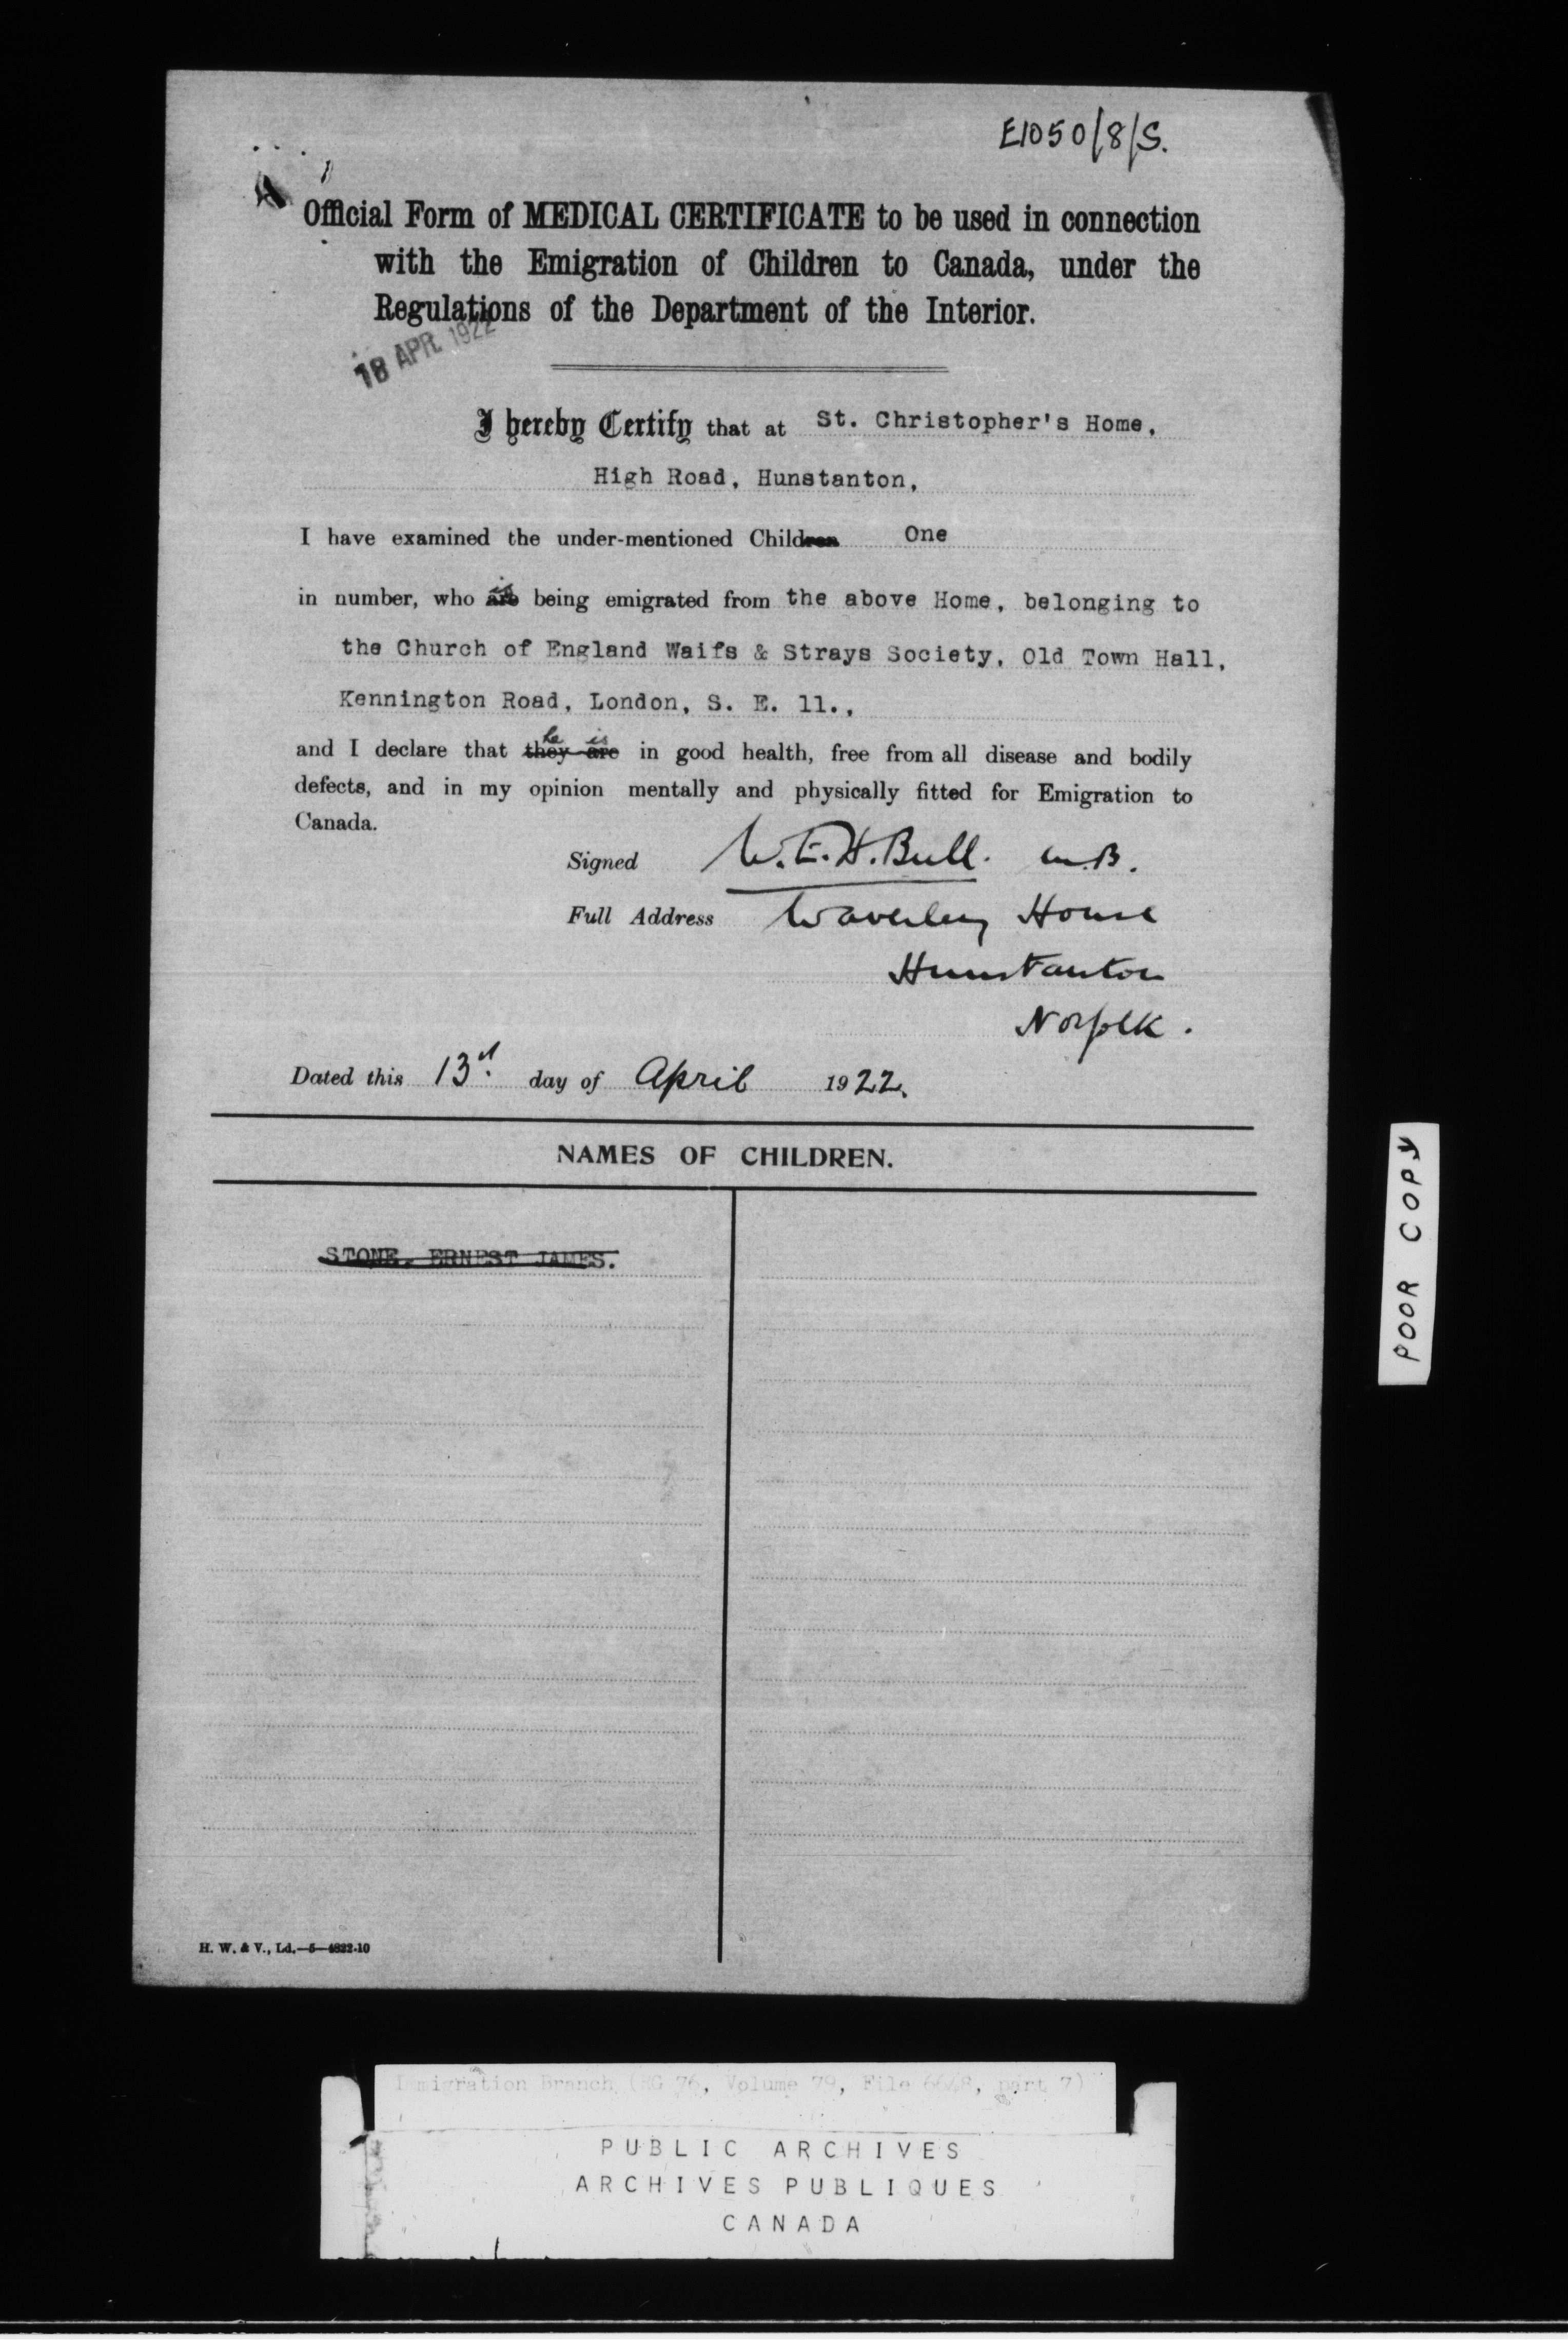 E1050/8/S.
Official Form of MEDICAL CERTIFICATE to be used in connection
with the Emigration of Children to Canada, under the
Regulations of the Department of the Interior.
18 APR. 1922
I hereby Certify that at St. Christopher's Home,
High Road, Hunstanton,
I have examined the under-mentioned Children One
in number, who are is being emigrated from the above Home, belonging to
the Church of England Waifs & Strays Society, Old Town Hall,
Kennington Road, London, S. E. 11.,
he is
and I declare that they are in good health, free from all disease and bodily
defects, and in my opinion mentally and physically fitted for Emigration to
Canada.
Signed W. E. H. Bull. M.B.
Full Address Waverley House
Hunstanton
Norfolk.
Dated this 13th day of April 1922.
NAMES OF CHILDREN.
STONE. ERNEST JAMES.
H. W. & V., Ld.—5—4822-10
POOR COPY
Immigration Branch (RG 76, Volume 79, File 6648, part 7)
PUBLIC ARCHIVES
ARCHIVES PUBLIQUES
CANADA